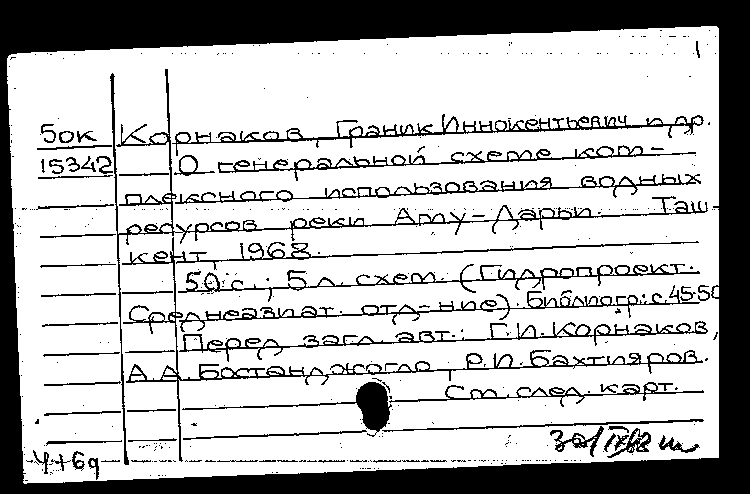 1
Бок Корнаков, Граник Иннокентьевич и др.
15342 О генеральной схеме ком-
плексного использования водных
ресурсов реки Аму-Дарьи. Таш-
кент, 1968.
50 с.; 5 л. схем. (Гидропроект.
Среднеазиат. отд-ние). Библиогр.: с. 45-50
Перед загл. авт.: Г.И. Корнаков,
А.А. Бостанджогло, Р.И. Бахтияров.
См. след. карт.